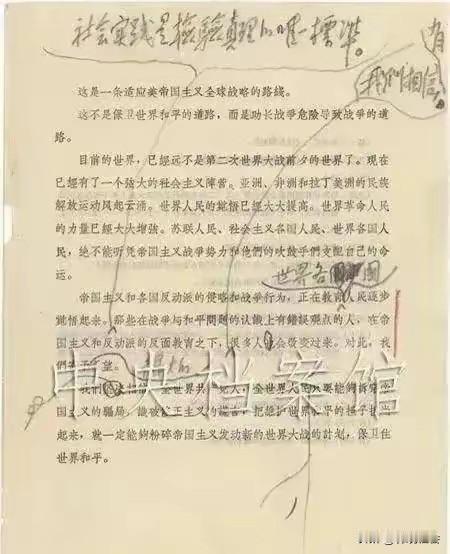 社会实践是检验真理的唯一標準。
有
我們相信
这是一条适应美帝国主义全球战略的路线。
这不是保卫世界和平的道路，而是助长战争危险导致战争的道
路。
目前的世界，已經远不是第二次世界大战前夕的世界了。现在
已經有了一个强大的社会主义陣营。亚洲、非洲和拉丁美洲的民族
解放运动风起云涌。世界人民的觉悟已經大大提高。世界革命人民
的力量已經大大增強。苏联人民、社会主义各国人民、世界各国人
民，绝不能听凭帝国主义战争势力和他們的吹鼓手們支配自己的命
运。
世界各国
帝国主义和各国反动派的侵略和战争行为，正在教育人民逐步
觉悟起来。那些在战争与和平問題的认識上有錯誤观点的人，在帝
国主义和反动派的反面教育之下，很多人会改变过来。对此，我
們 望。
很大的
中央档案馆
我們 相信，全世界共产党人，全世界人民只要能夠拆穿帝
国主义的騙局，識破修正主义的謊言，把維护世界和平的担子担当
起来，就一定能夠粉碎帝国主义发动新的世界大战的計划，保卫住
世界和平。